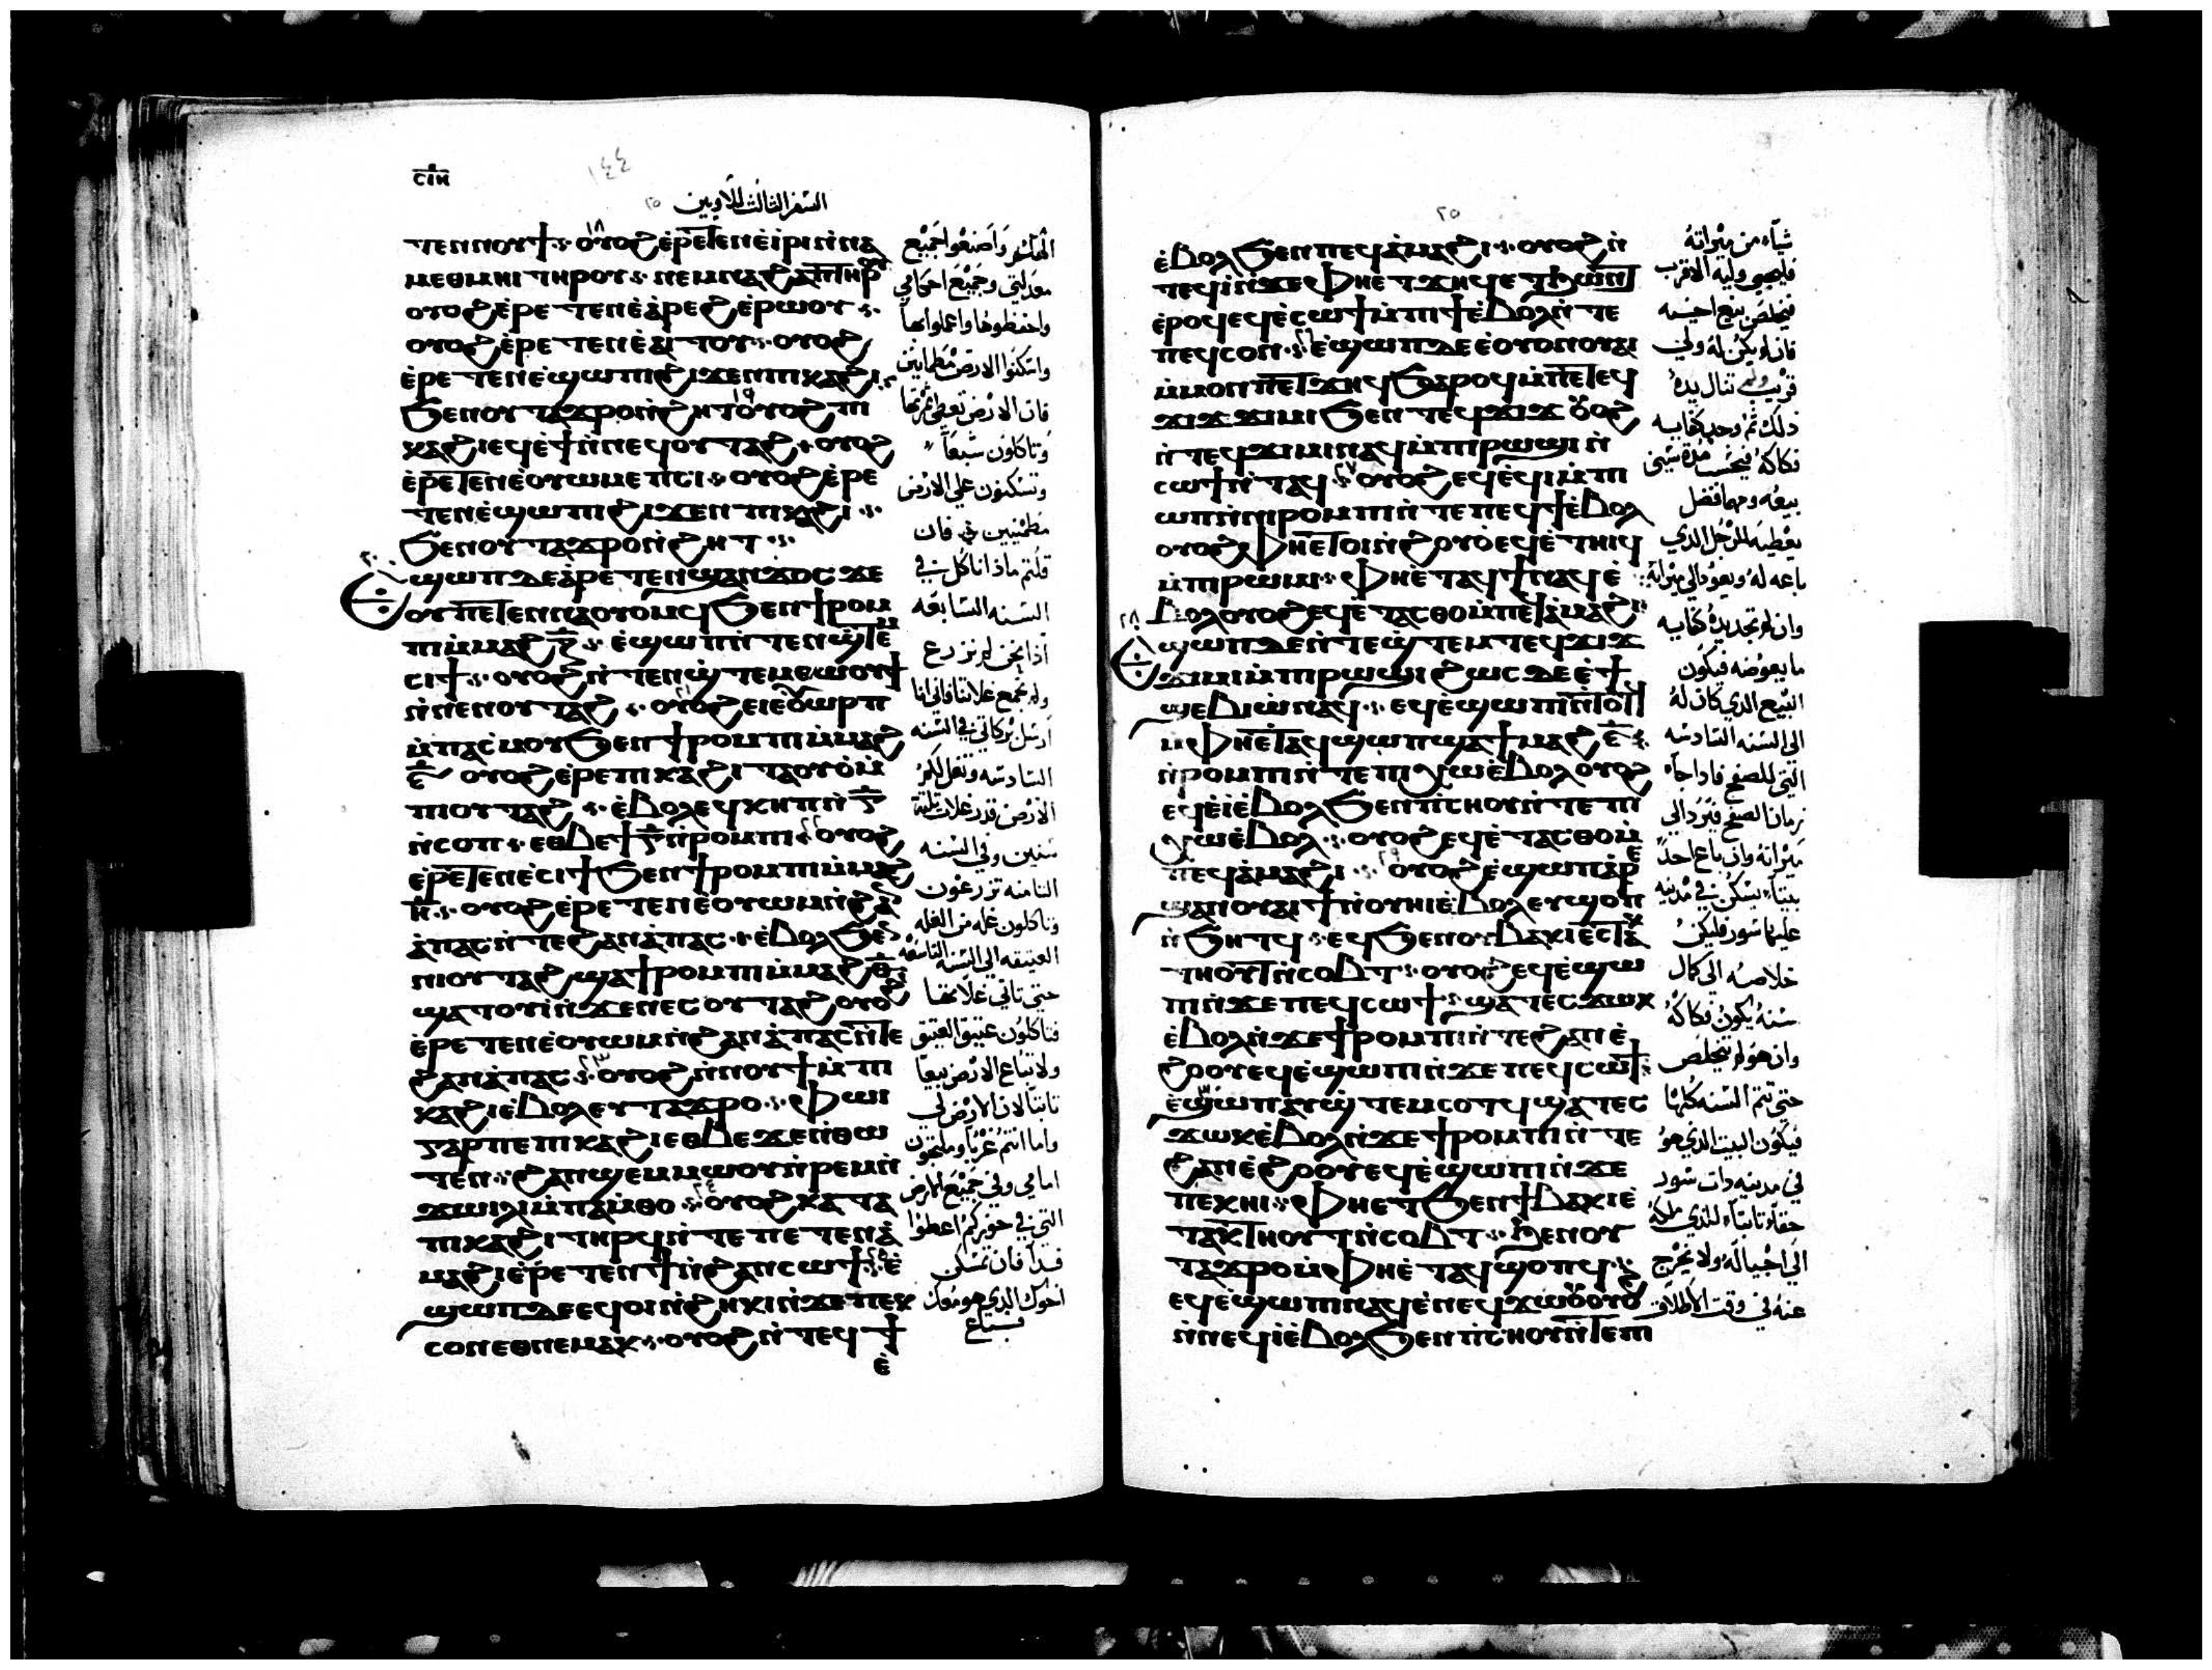 ⲥⲓⲏ
١٤٤
السفر الثالث للاويين
٢٥
ⲧⲉⲛⲛⲟⲩϯ ⲟⲩⲟϩ ⲉⲣⲉⲧⲉⲛⲉⲓⲣⲓ ⲛⲛⲁ
ⲙⲉⲑⲙⲏⲓ ⲧⲏⲣⲟⲩ ⲛⲉⲙ ⲛⲁϩⲁⲡ ⲧⲏⲣⲟⲩ
ⲟⲩⲟϩ ⲉⲣⲉⲧⲉⲛⲉⲁⲣⲉϩ ⲉⲣⲱⲟⲩ
ⲟⲩⲟϩ ⲉⲣⲉⲧⲉⲛⲉⲁⲓⲧⲟⲩ ⲟⲩⲟϩ
ⲉⲣⲉⲧⲉⲛⲉϣⲱⲡⲓ ϩⲓϫⲉⲛ ⲡⲓⲕⲁϩⲓ
ϧⲉⲛ ⲟⲩⲧⲁϫⲣⲟ ⲛϩⲏⲧ ⲟⲩⲟϩ ⲡⲓ
ⲕⲁϩⲓ ⲉϥⲉϯ ⲛⲛⲉϥⲟⲩⲧⲁϩ ⲟⲩⲟϩ
ⲉⲣⲉⲧⲉⲛⲉⲟⲩⲱⲙ ⲉⲡⲥⲓ ⲟⲩⲟϩ ⲉⲣⲉ
ⲧⲉⲛⲉϣⲱⲡⲓ ϩⲓϫⲉⲛ ⲡⲓⲕⲁϩⲓ
ϧⲉⲛ ⲟⲩⲧⲁϫⲣⲟ ⲛϩⲏⲧ
ⲉϣⲱⲡ ⲇⲉ ⲁⲣⲉⲧⲉⲛϣⲁⲛϫⲟⲥ ϫⲉ
ⲟⲩ ⲡⲉⲧⲉⲛⲛⲁⲟⲩⲟⲙϥ ϧⲉⲛ ϯⲣⲟⲙ
ⲡⲓ ⲙⲙⲁϩ ⲍ ⲉϣⲱⲡ ⲛⲧⲉⲛϣⲧⲉⲙ
ⲥⲓϯ ⲟⲩⲟϩ ⲛⲧⲉⲛϣⲧⲉⲙⲑⲱⲟⲩϯ
ⲛⲛⲉⲛⲟⲩⲧⲁϩ ⲟⲩⲟϩ ⲉⲓⲉⲟⲩⲱⲣⲡ
ⲙⲡⲁⲥⲙⲟⲩ ϧⲉⲛ ϯⲣⲟⲙⲡⲓ ⲙⲙⲁϩ
ⲋ ⲟⲩⲟϩ ⲉⲣⲉ ⲡⲓⲕⲁϩⲓ ⲧⲁⲟⲩⲟ ⲙ
ⲡⲓⲟⲩⲧⲁϩ ⲉⲃⲟⲗ ⲉϥⲕⲏⲡ ⲛ ⲅ
ⲛⲥⲟⲡ ⲉⲑⲃⲉ ϯ ⲅ ⲛⲣⲟⲙⲡⲓ ⲟⲩⲟϩ
ⲉⲣⲉⲧⲉⲛⲉⲥⲓϯ ϧⲉⲛ ϯⲣⲟⲙⲡⲓ ⲙⲙⲁϩ
ⲏ ⲟⲩⲟϩ ⲉⲣⲉⲧⲉⲛⲉⲟⲩⲱⲙ ⲛϩⲁⲛ
ⲁⲡⲁⲥ ⲛⲧⲉ ϩⲁⲛⲁⲡⲁⲥ ⲉⲃⲟⲗ ϧⲉⲛ
ⲛⲓⲟⲩⲧⲁϩ ϣⲁ ϯⲣⲟⲙⲡⲓ ⲙⲙⲁϩ ⲑ
ϣⲁⲧⲟⲩⲓ ⲛϫⲉ ⲛⲉⲥⲟⲩⲧⲁϩ ⲟⲩⲟϩ
ⲉⲣⲉⲧⲉⲛⲉⲟⲩⲱⲙ ⲛϩⲁⲛⲁⲡⲁⲥ ⲛⲧⲉ
ϩⲁⲛⲁⲡⲁⲥ ⲟⲩⲟϩ ⲛⲛⲟⲩϯ ⲙⲡⲓ
ⲕⲁϩⲓ ⲉⲃⲟⲗ ⲉⲩⲧⲁϫⲣⲟ ⲫⲱⲓ
ⲅⲁⲣ ⲡⲉ ⲡⲓⲕⲁϩⲓ ⲉⲑⲃⲉ ϫⲉ ⲛⲑⲱ
ⲧⲉⲛ ϩⲁⲛϣⲉⲙⲙⲱⲟⲩ ⲛⲣⲉⲙⲛ
ϫⲱⲓⲗⲓ ⲙⲡⲁⲙⲑⲟ ⲟⲩⲟϩ ⲕⲁⲧⲁ
ⲡⲓⲕⲁϩⲓ ⲧⲏⲣϥ ⲛⲧⲉ ⲡⲉⲧⲉⲛⲁ
ⲙⲁϩⲓ ⲉⲣⲉⲧⲉⲛϯ ⲛϩⲁⲛⲥⲱϯ ⲉ
ϣⲱⲡ ⲇⲉ ⲉϥⲟⲓ ⲛϩⲏⲕⲓ ⲛϫⲉ ⲡⲉⲕ
ⲥⲟⲛ ⲉⲑⲛⲉⲙⲁⲕ ⲟⲩⲟϩ ⲛⲧⲉϥϯ
ⲉ
واصنعوا جميع
معدلتي وجميع احكامي
واحفظوها واعملوا بها
واسكنوا الارض مطمايين
فان الارض تعطي ثمرتها
وتاكلون شبعاً
وتسكنون علي الارض
مطمئنين فان
قلتم ماذا ناكل في
السنه السابعه
اذا نحن لم نزرع
ولم نجمع غلاتنا فاني انا
ارسل بركاتي في السنه
السادسه وتغل لكم
الارض قدر غلات ثلثة
سنين وفي السنه
الثامنه تزرعون
وتاكلون غله من الغله
العتيقه الي السنه التاسعه
حتي تاتي غلاتها
فتاكلون عتيق العتيق
ولا تباع الارض بيعاً
ثابتاً لان الارض لي
واما انتم غربا وملتجون
امامي وفي جميع الارض
التي في حوزكم اعطوا
فدا فان تمسكن
اخوك الذي هو معك
فباع
٢٥
ⲉⲃⲟⲗ ϧⲉⲛ ⲡⲉϥⲁⲙⲁϩⲓ ⲟⲩⲟϩ ⲛ
ⲧⲉϥⲓ ⲛϫⲉ ⲫⲏⲉⲧϧⲏϥ ⲉⲧϧⲱⲛⲧ
ⲉⲣⲟϥ ⲉϥⲉⲥⲱϯ ⲙⲡⲓϯ ⲉⲃⲟⲗ ⲛⲧⲉ
ⲡⲉϥⲥⲟⲛ ⲉϣⲱⲡ ⲇⲉ ⲉⲟⲩⲟⲛ ⲟⲩⲁⲓ
ⲙⲙⲟⲛ ⲡⲉⲧϧⲏϥ ϧⲁⲣⲟϥ ⲙⲡⲉⲧⲉϥ
ϫⲓϫ ϫⲓⲙⲓ ϧⲉⲛ ⲧⲉϥϫⲓϫ ⲟⲩⲟϩ
ⲛⲧⲉϥϫⲓⲙⲓ ⲛⲁϥ ⲙⲡⲓⲣⲱϣⲓ ⲛ
ⲥⲱϯ ⲛⲧⲁϥ ⲟⲩⲟϩ ⲉϥⲉϥⲓ ⲙⲡⲓ
ⲱⲡ ⲛⲛⲓⲣⲟⲙⲡⲓ ⲛⲧⲉ ⲡⲉϥϯ ⲉⲃⲟⲗ
ⲟⲩⲟϩ ⲫⲏⲉⲧⲟⲓ ⲛϩⲟⲩⲟ ⲉϥⲉⲧⲏⲓϥ
ⲙⲡⲓⲣⲱⲙⲓ ⲫⲏⲉⲧⲁϥϯ ⲛⲁϥ ⲉ
ⲃⲟⲗ ⲟⲩⲟϩ ⲉϥⲉⲧⲁⲥⲑⲟ ⲙⲡⲉϥⲁⲙⲁϩⲓ
ⲉϣⲱⲡ ⲇⲉ ⲛⲧⲉϣⲧⲉⲙ ⲧⲉϥϫⲓϫ
ϫⲓⲙⲓ ⲙⲡⲓⲣⲱϣⲓ ϩⲱⲥ ⲇⲉ ⲉϯ
ϣⲉⲃⲓⲱ ⲛⲁϥ ⲉϥⲉϣⲱⲡⲓ ⲛⲧⲟⲧϥ
ⲙⲫⲏⲉⲧⲁϥϣⲱⲡ ϣⲁ ϯⲙⲁϩ ⲋ
ⲛⲣⲟⲙⲡⲓ ⲛⲧⲉ ⲡⲓⲭⲱ ⲉⲃⲟⲗ ⲟⲩⲟϩ
ⲉϥⲉⲓ ⲉⲃⲟⲗ ϧⲉⲛ ⲡⲥⲏⲟⲩ ⲛⲧⲉ ⲡⲓ
ⲭⲱ ⲉⲃⲟⲗ ⲟⲩⲟϩ ⲉϥⲉⲧⲁⲥⲑⲟ ⲙ
ⲡⲉϥⲁⲙⲁϩⲓ ⲟⲩⲟϩ ⲉϣⲱⲡ ⲁⲣⲉ
ϣⲁⲛ ⲟⲩⲁⲓ ϯ ⲛⲟⲩⲏⲓ ⲉⲃⲟⲗ ⲉⲩϣⲟⲡ
ⲛϧⲏⲧϥ ⲉϥϧⲉⲛ ⲟⲩⲃⲁⲕⲓ ⲉⲥⲧⲁⲕ
ⲧⲏⲟⲩⲧ ⲛⲥⲟⲃⲧ ⲟⲩⲟϩ ⲉϥⲉϣⲱ
ⲡⲓ ⲛϫⲉ ⲡⲉϥⲥⲱϯ ϣⲁⲧⲉⲥϫⲱⲕ
ⲉⲃⲟⲗ ⲛϫⲉ ϯⲣⲟⲙⲡⲓ ⲛⲧⲉ ϩⲁⲛⲉ
ϩⲟⲟⲩ ⲉϥⲉϣⲱⲡⲓ ⲛϫⲉ ⲡⲉϥⲥⲱϯ
ⲉϣⲱⲡ ⲁⲩϣⲧⲉⲙⲥⲟⲧϥ ϣⲁⲧⲉⲥ
ϫⲱⲕ ⲉⲃⲟⲗ ⲛϫⲉ ϯⲣⲟⲙⲡⲓ ⲛⲧⲉ
ϩⲁⲛⲉϩⲟⲟⲩ ⲉϥⲉϣⲱⲡⲓ ⲛϫⲉ
ⲡⲉⲕⲏⲓ ⲫⲏⲉⲧϧⲉⲛ ϯⲃⲁⲕⲓ ⲉ
ⲧⲁⲕⲧⲏⲟⲩⲧ ⲛⲥⲟⲃⲧ ϧⲉⲛ ⲟⲩ
ⲧⲁϫⲣⲟ ⲙⲫⲏⲉⲧⲁϥϣⲟⲡϥ
ⲉϥⲉϣⲱⲡⲓ ⲛⲁϥ ⲉⲛⲉϥϫⲱⲟⲩ ⲟⲩⲟϩ
ⲛⲛⲉϥⲓ ⲉⲃⲟⲗ ϧⲉⲛ ⲡⲥⲏⲟⲩ ⲛⲧⲉ ⲡⲓ
شياء من ميراثه
وليه الاقرب
بيع اخيه
فان لم يكن له ولي
قريب تنال يده
بيعه ومهما فضل
يعطيه للرجل الذي
باعه له ويعود الي ميراثه
وان لم تجد يده كفايه
ما يعوضه فيكون
البيع الذي كان له
الي السنه السادسه
التي للصفح فاذا جا
زمان الصفح فيرد الي
ميراثه وان باع احد
بيتاً يسكن في مدينه
عليها سور فليكن
خلاصه الي كمال
سنه يكون فكاكه
وان هو لم يخلص
حتي تتم السنه كلها
فيكون البيت الذي هو
في مدينه ذات سور
حقاً ثابتاً للذي ملكه
الي اجياله ولا يخرج
عنه في وقت الاطلاق